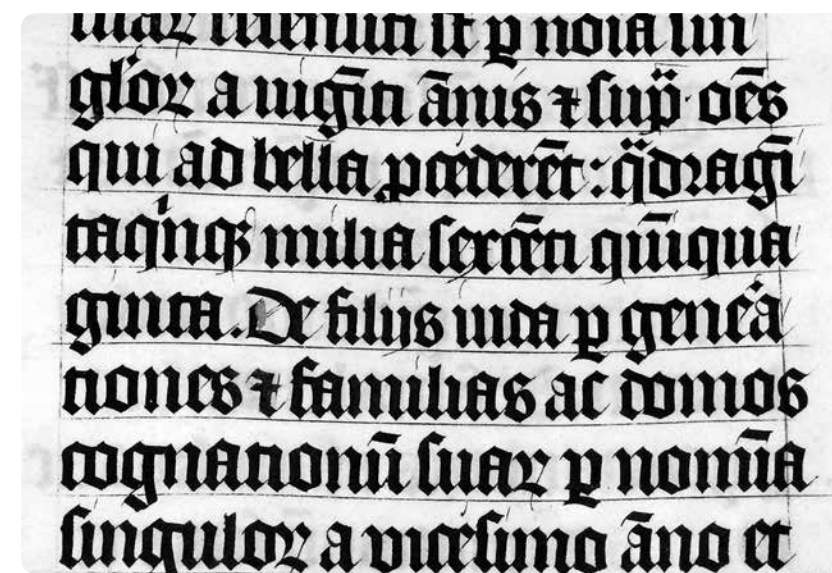 suaꝝ recensiti st ꝑ noīa sin
gl'oꝝ a uigīti ānis ⁊ sup̈ · oēs
qui ad bella ꝓcederēt : q̈dragī
taqinqꝫ milia sexcēti qūiqua
ginta. De filijs iuda ꝑ gene͛a
tiones ⁊ familias ac domos
cognationū suaꝝ ꝑ nomīa
singuloꝝ a vicesimo āno et